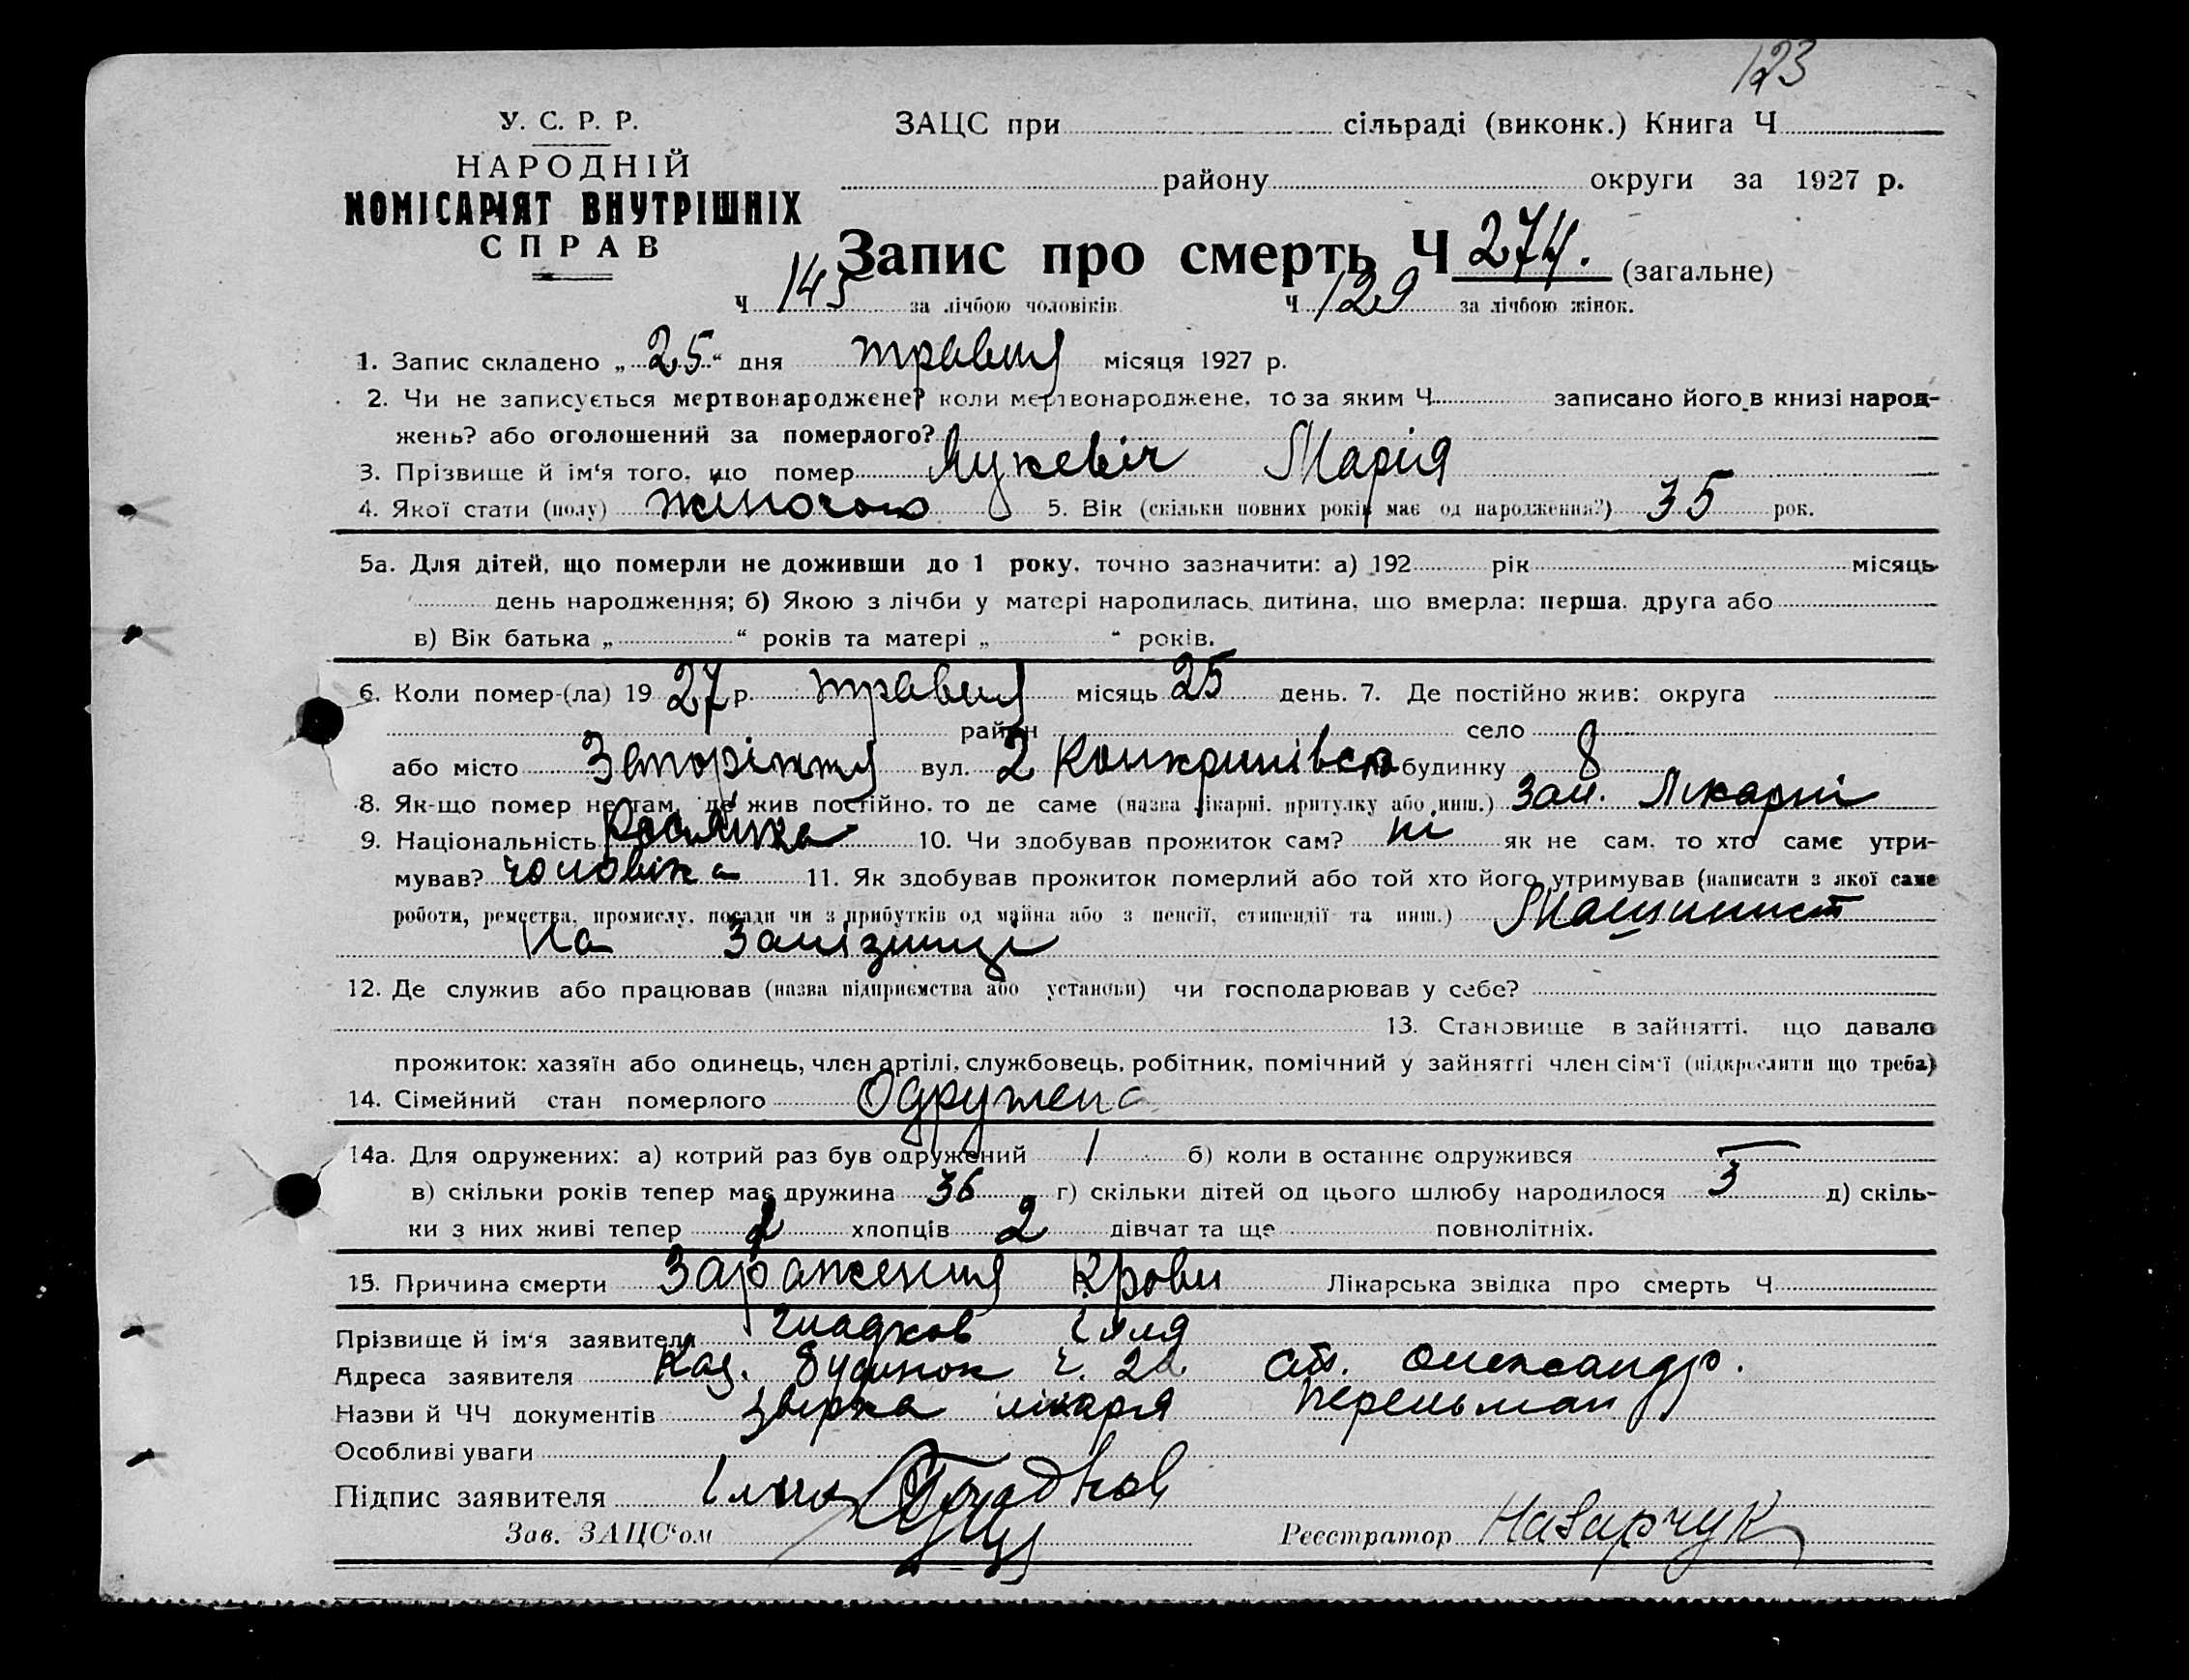 123
У. С. Р. Р.
НАРОДНІЙ
КОМІСАРІЯТ ВНУТРІШНІХ
СПРАВ
ЗАЦС при сільраді (виконк.) Книга Ч
району округи за 1927 р.
Запис про смерть Ч 274. (загальне)
Ч 145 за лічбою чоловіків. Ч 129 за лічбою жінок.
1. Запис складено „ 25 “ дня травня місяця 1927 р.
2. Чи не записується мертвонароджене? коли мертвонароджене, то за яким Ч записано його в книзі народ-
жень? або оголошений за померлого?
3. Прізвище й ім‘я того, що помер Лукевіч Марія
4. Якої стати (полу) жіночою 5. Вік (скільки повних років має од народження?) 35 рок.
5а. Для дітей, що померли не доживши до 1 року, точно зазначити: а) 192 рік місяць
день народження; б) Якою з лічби у матері народилась дитина, що вмерла: перша, друга або
в) Вік батька „ “ років та матері „ “ років.
6. Коли помер-(ла) 19 27 р. травня місяць 25 день. 7. Де постійно жив: округа
район село
або місто Запоріжжя вул. 2 будинку 8
8. Як-що помер не там, де жив постійно, то де саме (назва лікарні, притулку або инш.) Зал. Лікарні
9. Національність Росіянка 10. Чи здобував прожиток сам? ні як не сам, то хто саме утри-
мував? чоловіка 11. Як здобував прожиток померлий або той хто його утримував (написати з якої саме
роботи, ремества, промислу, посади чи з прибутків од майна або з пенсії, стипендії та инш.) Машинист
На Залізниці
12. Де служив або працював (назва підприємства або установи) чи господарював у себе?
13. Становище в зайнятті, що давало
прожиток: хазяїн або одинець, член артілі, службовець, робітник, помічний у зайнятті член сім‘ї (підкреслити що треба)
14. Сімейний стан померлого Одружена
14а. Для одружених: а) котрий раз був одружений 1 б) коли в останнє одружився
в) скільки років тепер має дружина 36 г) скільки дітей од цього шлюбу народилося 3 д) скіль-
ки з них живі тепер хлопців 2 дівчат та ще повнолітніх.
15. Причина смерти Зараження Крови Лікарська звідка про смерть Ч
Прізвище й ім‘я заявителя Гладков Ілля
Адреса заявителя Каз. будинок ч. 22 ст. Олександр.
Назви й ЧЧ документів звідка лікаря Перельман
Особливі уваги
Підпис заявителя Гладков
Зав. ЗАЦС‘ом Реєстратор Назарчук